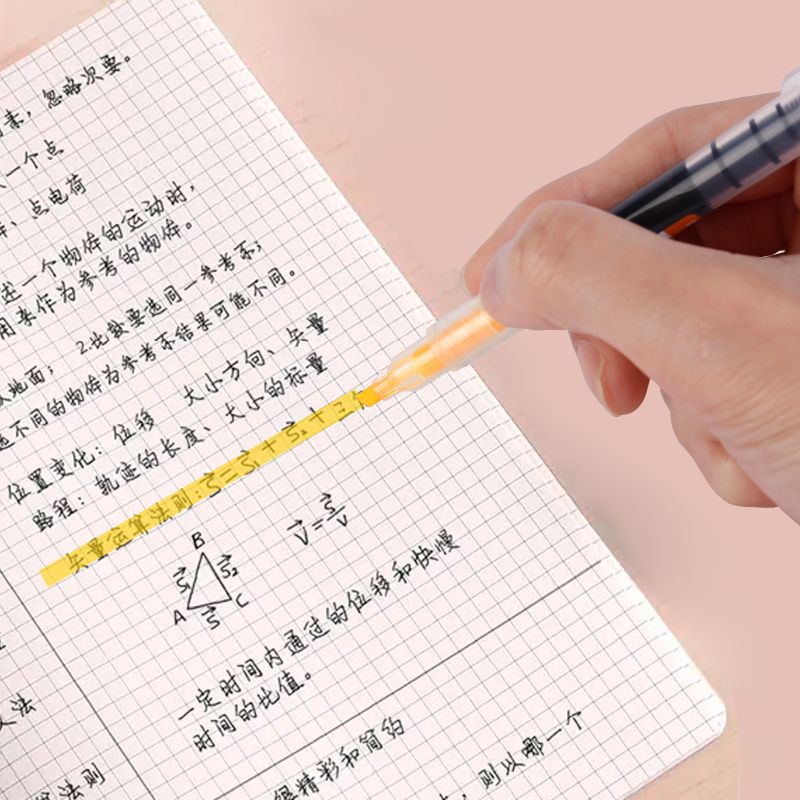 素，忽略次要。
一个点
、点电荷
述一个物体的运动时，
用来作为参考的物体。
地面； 2.比较要选同一参考系；
选不同的物体为参考系结果可能不同。
位置变化：位移 大小方向、矢量
路程：轨迹的长度、大小的标量
矢量运算法则：S⃗=S⃗₁+S⃗₂+
B
S⃗₁ S⃗₂
A S⃗ C
V⃗=S⃗/V
一定时间内通过的位移和快慢
时间的比值。
法
算法则
很精彩和简约
，则以哪一个